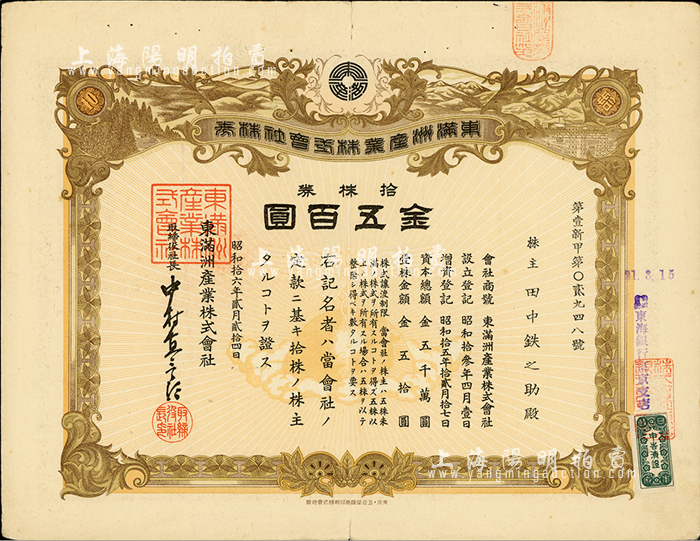 上海陽明拍賣
www.yangmingauction.com
東滿洲產業株式會社株券
拾株券
金五百圓
第壹新甲第〇貳九四八號
株主 田中鉄之助殿
會社商號 東滿洲產業株式會社
設立登記 昭和拾參年四月壹日
增資登記 昭和拾五年拾貳月拾七日
資本總額 金五千萬圓
壹株金額 金五拾圓
株式讓渡制限 當會社ノ株主ハ五株未
滿ノ株式ヲ所有スルコトヲ得ズ五株以
上ノ株式ヲ所有スル場合ハ五株ヲ以テ
整除シ得ベキ數タルコトヲ要ス
右記名者ハ當會社ノ
定款ニ基キ拾株ノ株主
タルコトヲ證ス
昭和拾六年貳月貳拾四日
東滿洲產業株式會社
取締役社長
東滿洲
產業株
式會社
91.3.15
上海陽明拍賣
www.yangmingauction.com